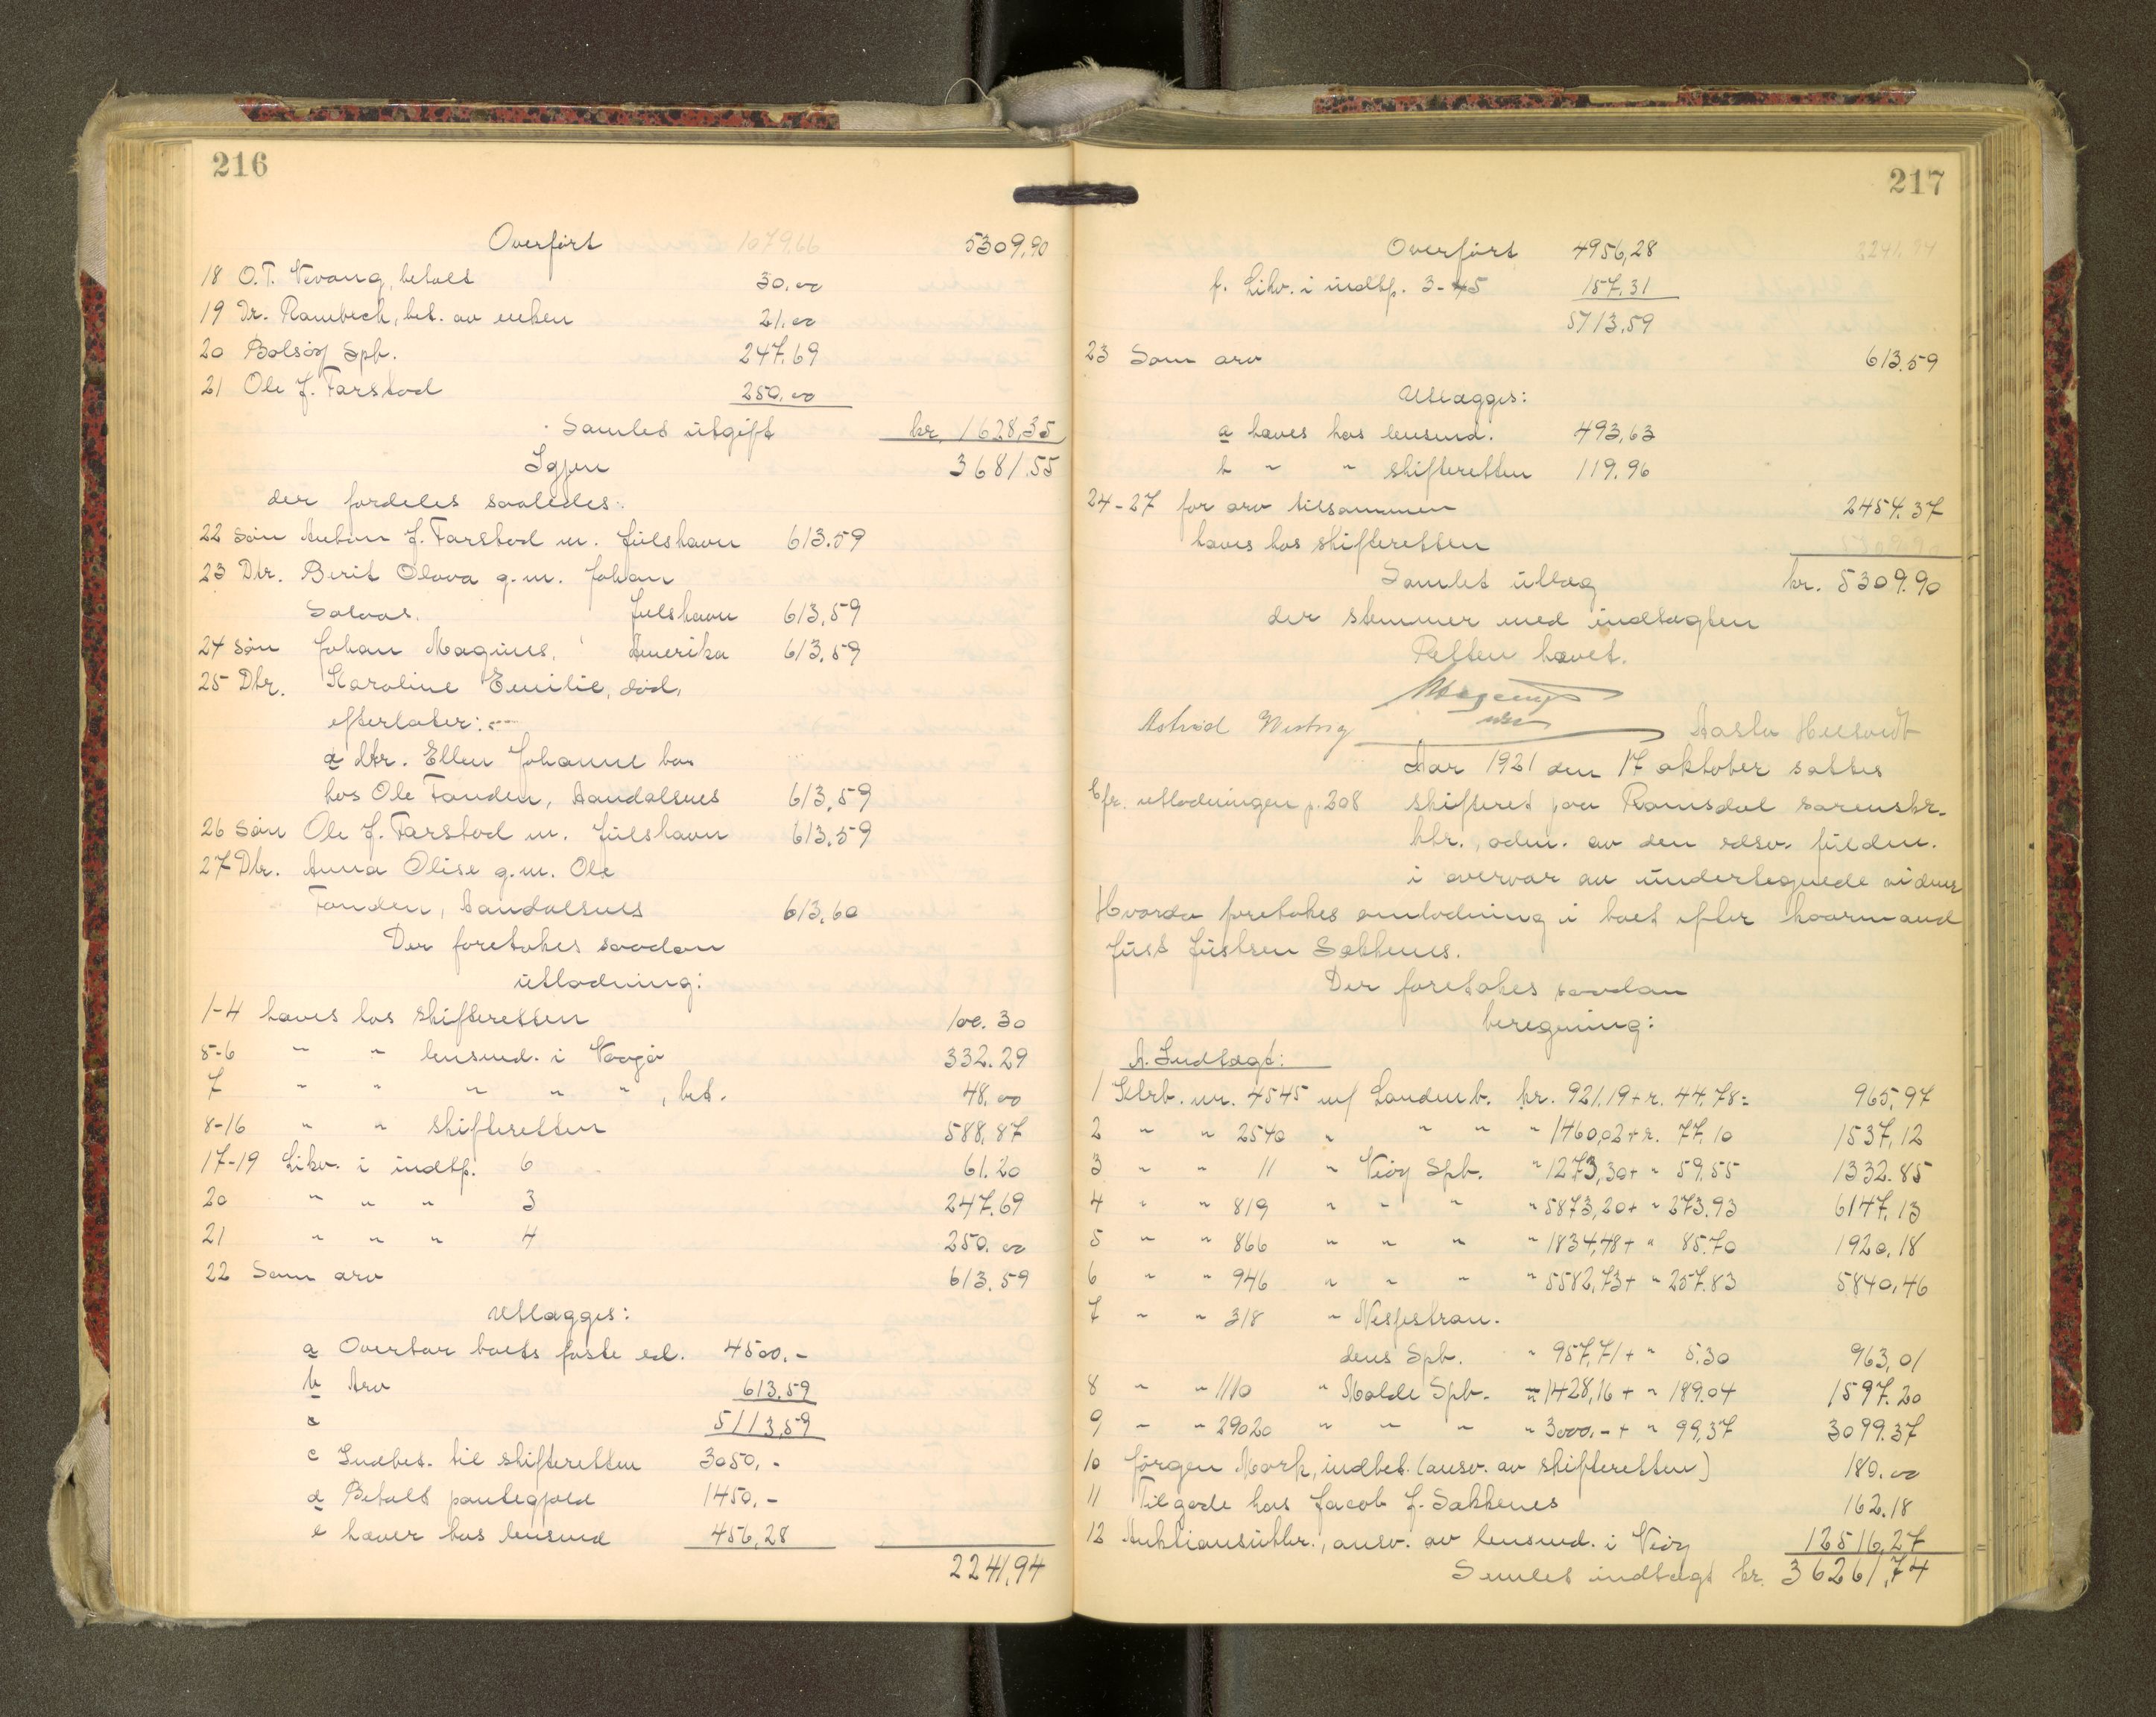 216
Overført 1079,66 5309,90
18 O.T. Nevang, betalt 30.00
19 Dr. Rambech, bet. av enken 21.00
20 Bolsøy Spb. 247.69
21 Ole J. Farstad 250.00
Samlet utgift kr. 1628,35
Igjen 3681.55
der fordeles saaledes:
22 Søn Anton J. Farstad m. Julshavn 613.59
23 Dtr. Berit Olava g.m. Johan
Julshavn 613,59
24 Søn Johan Magnus, Amerika 613,59
25 Dtr. Karoline Emilie, død,
efterlater:
a dtr. Ellen Johanne bor
hos Ole Fanden, Aandalsnes 613,59
26 Søn Ole J. Farstad m. Julshavn 613.59
27 Dtr. Anna Olise g.m. Ole
Fanden, Aandalsnes 613,60
Der foretokes saadan
utlodning:
1-4 haves hos skifteretten 100.30
5-6 " " lensmd. i Vaagø 332.29
7 " " " " ", bet. 48.00
8-16 " " skifteretten 588,87
17-19 Likv. i indtp. 6 61.20
20 " " " 3 247.69
21 " " " 4 250.00
22 Som arv 613.59
Utlægges:
a Overtar boets faste ed. 4500.-
b Arv 613.59
5113,59
c Indbet. til skifteretten 3050,-
d Betalt pantegjæld 1450,-
e haver hos lensmd 456,28
2241,94
217
Overført 4956,28 2241,94
f. Likv. i indtp. 3-45 157.31
5113,59
23 Som arv 613.59
Utlægges:
a haves hos lensmd. 493,63
b " " skifteretten 119.96
24-27 for arv tilsammen 2454.37
haves hos skifteretten
Samlet utlæg kr. 5309.90
der stemmer med indtægten
Retten hævet.
Astrid Aasta
Aar 1921 den 17 oktober sattes
Cfr. utlodningen p. 208 skifteret paa Romsdal sorenskr.
ktr., adm. av den edsv. fuldm.
i overvær av undertegnede vidner
Hvorda foretokes omlodning i boet efter kaarmand
Just Justsen Sækkenes.
Der foretokes saadan
beregning:
A. Indtægt:
1 Ktrb. nr. 4545 m/ Landmb. kr. 921.19 + r. 44.78 = 965,97
2 " " 2540 " " " " 1460,02 + r. 77,10 1537,12
3 " " 11 " Veøy Spb. " 1273,30 + " 59,55 1332.85
4 " " 819 " " " " 5873,20 + " 273.93 6147.13
5 " " 866 " " " " 1834,48 + " 85.70 1920.18
6 " " 946 " " " " 5582,73 + " 257.83 5840,46
7 " " 318 " Nesjestran-
dens Spb. " 957,71 + " 5.30 963,01
8 " " 1110 " Molde Spb. " 1428,16 + " 189.04 1597.20
9 " " 29020 " " " " 3000.- + " 99,37 3099.37
10 Jørgen Mork, indbet. (ansv. av skifteretten) 180.00
11 Tilgode hos Jacob J. Sækkenes 162.18
12 Auktionsutbr., ansv. av lensmd. i Veøy 12516,27
Samlet indtægt kr. 36261,74